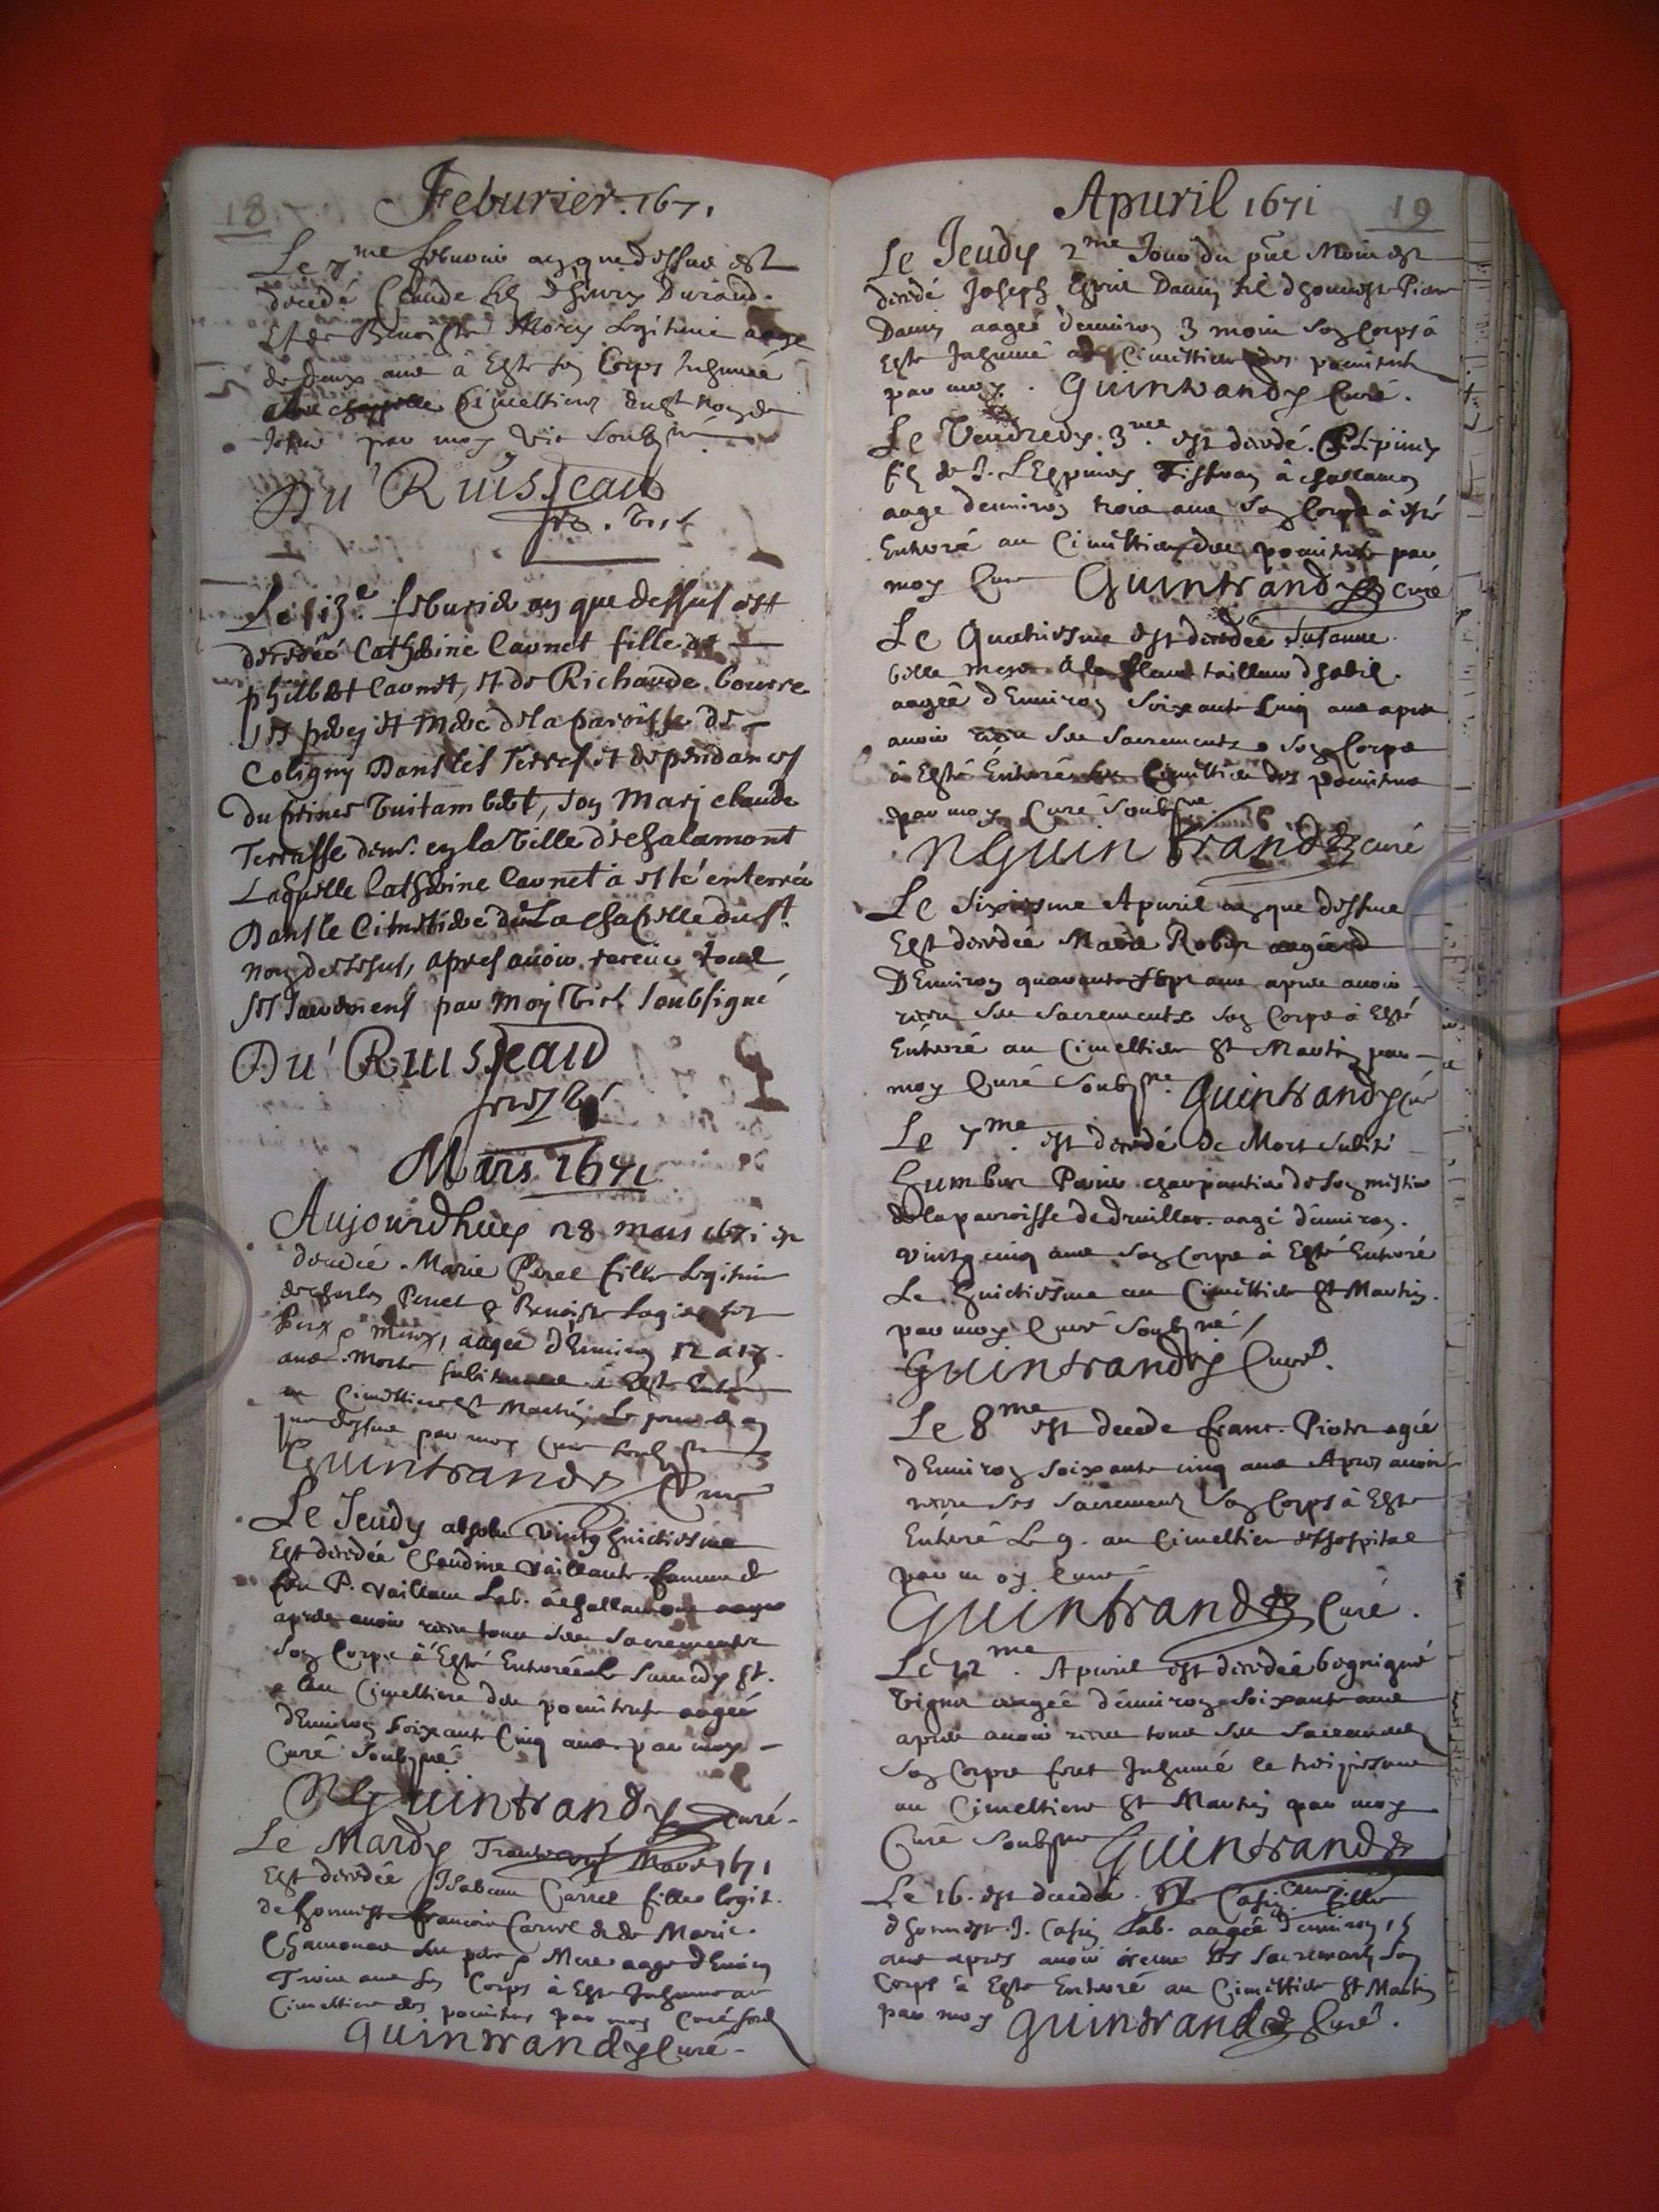 18
Feburier. 1671
Le 7me feburier an que dessus est
decedé Claude filz d'henry Durand.
Et de Benoiste Morey legitime aage
de deux ans à Este son Corps Inhumée
Cimeltiere du St Nom de
Jesus par moy Vic soubsné
Du Ruisseau
Le 13e feburier an que dessus est
decedée Catherine Caunet fille de
philibert Caunet, et de Richarde bourre
ses peres et mere de la paroisse de
Coligny Dans les Terres et dependances
du prince Vuitambert, son Mary claude
Terrasse dem. en la Ville de Chalamont
Laquelle Catherine Caunet a esté enterrée
Dans le Cimetiere de La chapelle du St
nom de Jesus, apres auoir receue tous
ses sacremens par moy Vic. soubsigné
Du Ruisseau
Mars 1671
Aujourdhuy 28 mars 1671 est
decedée Marie Peret fille legitime
de Charles Perret & Benoiste Lagier ses
Pere & Mere, aagée d'Enuiron 12 a 13
ans. Morte subitement à Este Enterré
au Cimeltiere St Martin Le jour & an
que dessus par moy Curé soubsne
Guintrandy Curé
Le Jeudy absolu vintg huictiesme
Est decedée Claudine vaillante femme de
feu P. vaillant Lab. à Challamont aagée
apres auoir receu tous ses sacrements
Son Corps à Esté Enterrée le samedy St.
au Cimeltiere des penitents aagée
d'Enuiron soixante Cinq ans. par moy
Curé soubsné
NGuintrandy curé.
Le Mardy Mars 1671
Est decedée Isabeau Carrel fille legit.
de honneste francois Carrel & de Marie.
Chamonar ses pere & Mere aage d'Enuiron
Trois ans son Corps à Este Inhume au
Cimeltiere des penitens par moy Curé soub
Guintrandy Curé.
Apuril 1671
19
Le Jeudy 2me Jour du pnt Mois est
decedé Joseph Esprit Dauin fil d'honneste Pierre
Dauin aageé denuiron 3 mois son Corps à
Este Inhumé au Cimeltiere des penitents
par moy. Guintrandy Curé.
Le Vendredy 3me est decedé. P. Lépiney
filz de J. LEspiney Tissran à Challamon
aage denuiron trois ans son Corps à esté
Enterré au Cimeltiere des penitents par
moy Cure Guintrandy Curé
Le Quatriesme est decedée Susanne
tailleur dhabil.
aagée dEnuiron soixante Cinq ans apres
auoir receu ses sacrements son Corps
à Esté Enterré Cimeltiere des penitens
par moy Curé soubsne
NGuintrandy curé
Le sixiesme Apuril an que dessus
Est decedée Marie Robin aagée
DEnuiron quarante sept ans apres auoir
receu ses sacrements son Corps à Esté
Enterré au Cimeltiere St Martin par
moy Curé soubsne. Guintrandy Curé
Le 7me. est decedé de Mort subite
humber Perrier charpantier de son mistier
de la parroisse de druillat. aagé denuiron.
vintg cinq ans son Corps à Esté Enterré
Le huictiesme au Cimeltiere St Martin.
par moy Curé soubsné
Guintrandy Curé.
Le 8me est decede franc. Pioter agié
dEnuiron soixante cinq ans Apres auoir
receu ses sacremens son Corps à Este
Enterré Le 9. au Cimeltiere de lhospital
par moy Curé
Guintrandy Curé.
Le 12me. Apuril est decedée
aageé denuiron soixante ans
apres auoir receu tous ses sacremens
son Corps fut Inhumé le treiziesme
au Cimeltiere St Martin par moy
Curé soubsne Guintrandy
Le 16. est decedée Casin fille
d'honneste J. Casin Lab. aagée denuiron 15
ans apres auoir receu les sacremens son
Corps à Este Enterré au Cimeltiere St Martin
par moy Guintrandy Curé.